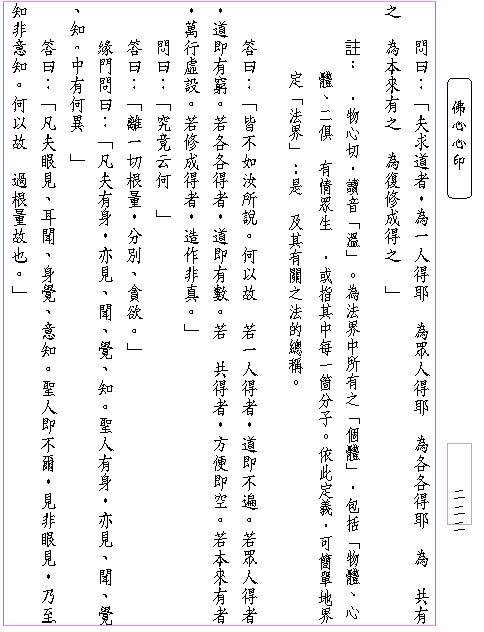 佛心心印
二二二
問曰：「夫求道者，為一人得耶 為眾人得耶 為各各得耶 為 共有
之 為本來有之 為復修成得之 」
註： ．物心切，讀音「溫」。為法界中所有之「個體」，包括「物體、心
體、二俱 有情眾生 ，或指其中每一箇分子。依此定義，可簡單地界
定「法界」：是 及其有關之法的總稱。
答曰：「皆不如汝所說。何以故 若一人得者，道即不遍。若眾人得者
，道即有窮。若各各得者，道即有數。若 共得者，方便即空。若本來有者
，萬行虛設。若修成得者，造作非真。」
問曰：「究竟云何 」
答曰：「離一切根量，分別、貪欲。」
緣門問曰：「凡夫有身，亦見、聞、覺、知。聖人有身，亦見、聞、覺
、知。中有何異 」
答曰：「凡夫眼見、耳聞、身覺、意知。聖人即不爾，見非眼見，乃至
知非意知。何以故 過根量故也。」